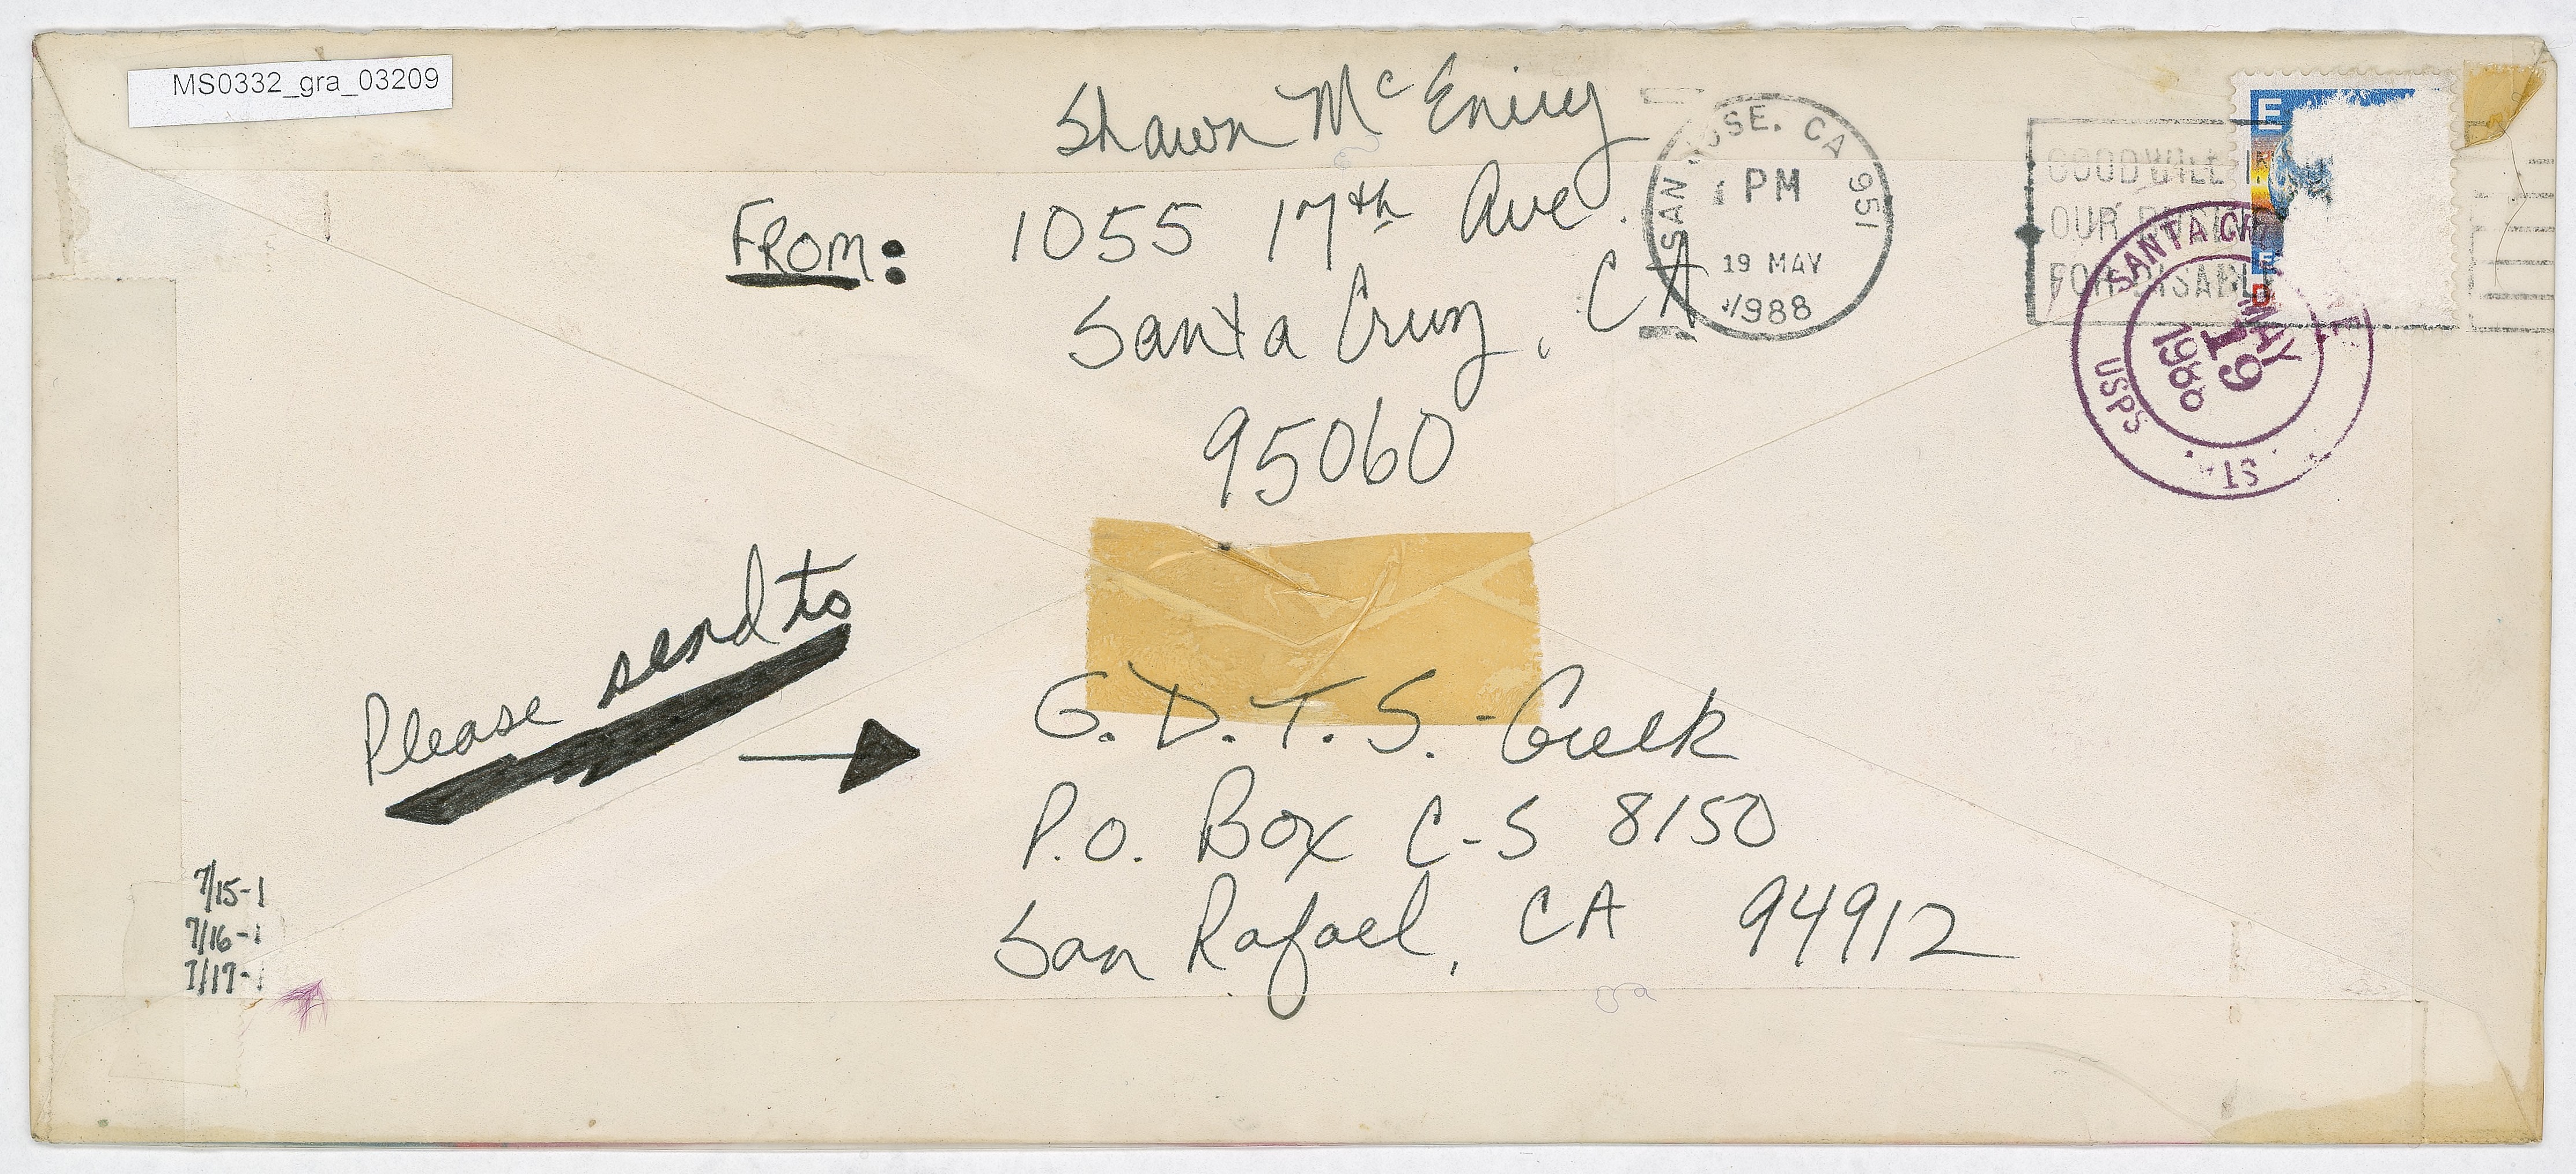 MS0332_gra_03209
Shawn McEniry
FROM: 1055 17th Ave.
Santa Cruz, CA
95060
SAN JOSE, CA 951
PM
19 MAY
1988
GOODWILL
OUR
FOR DISABL
SANTA
MAY
19
1988
USPS
STA.
Please send to
G.D.T.S.-Greek
P.O. Box C-S 8150
San Rafael, CA 94912
7/15-1
7/16-1
7/17-1